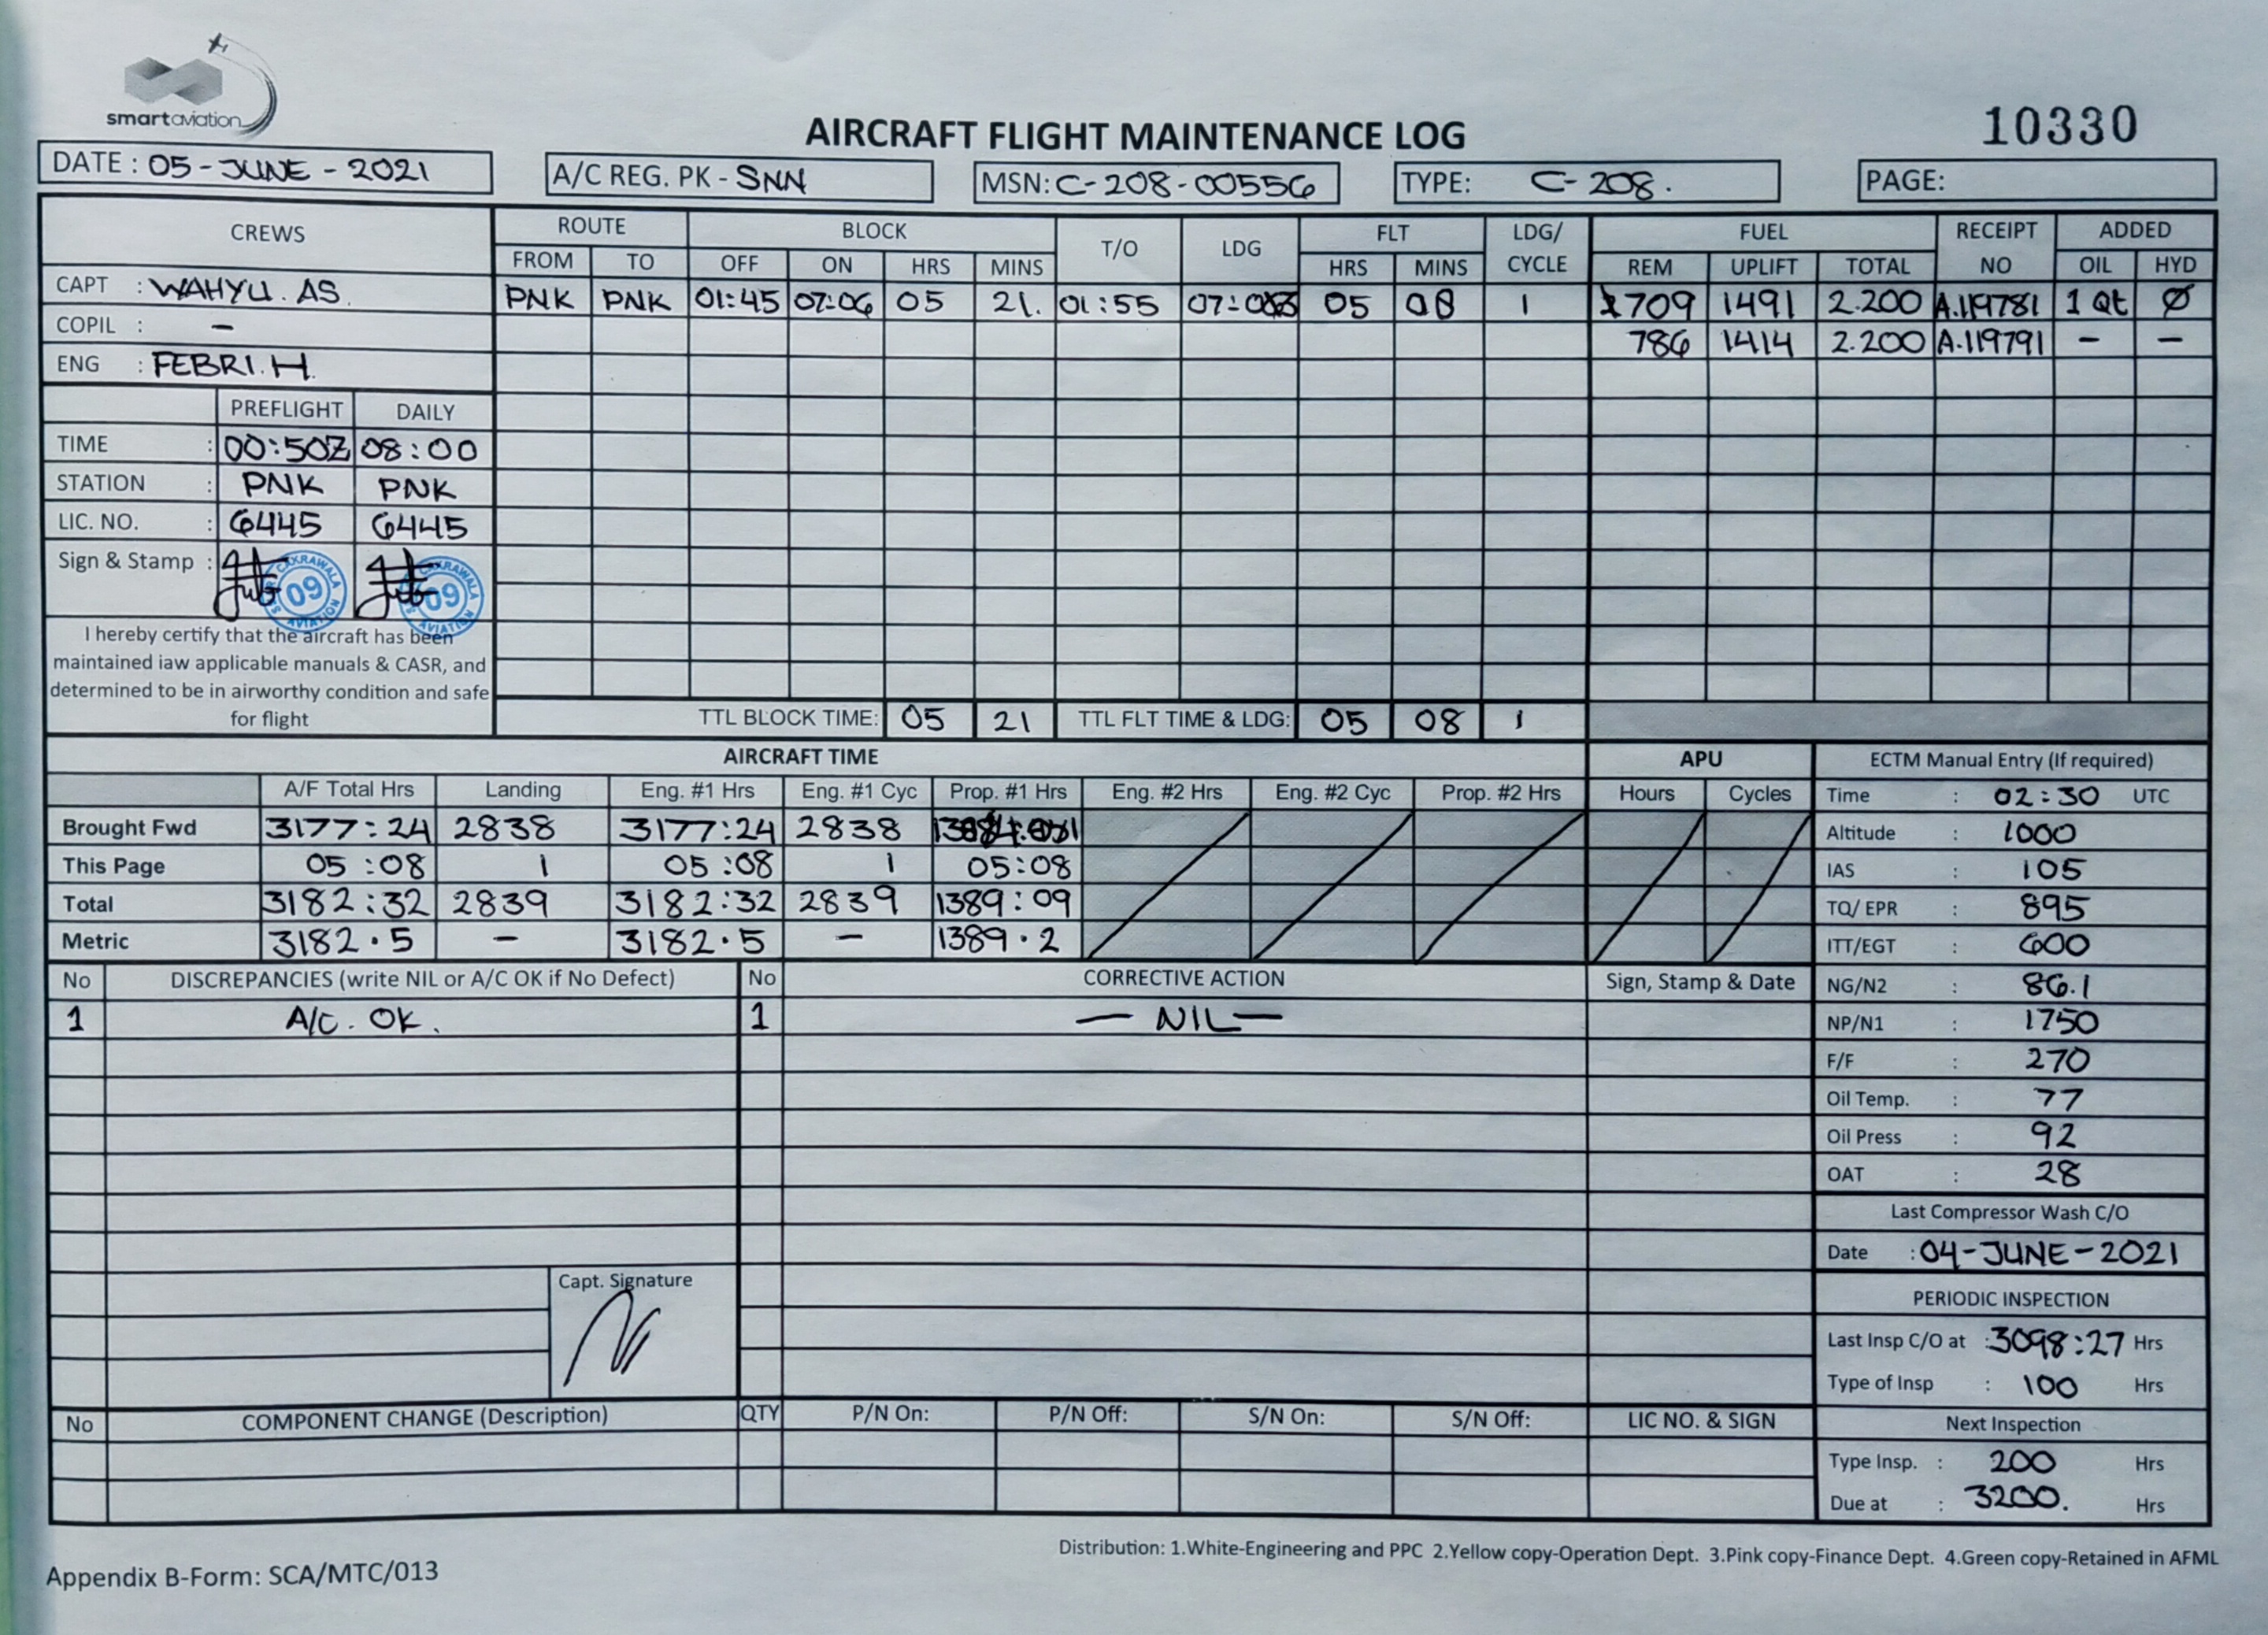 smartaviation
AIRCRAFT FLIGHT MAINTENANCE LOG
10330
DATE : 05-JUNE-2021
A/C REG. PK - SNN
MSN: C-208-00556
TYPE: C-208.
PAGE:
CREWS
ROUTE BLOCK T/O LDG FLT LDG/ CYCLE FUEL RECEIPT NO ADDED
FROM TO OFF ON HRS MINS HRS MINS REM UPLIFT TOTAL OIL HYD
CAPT : WAHYU. AS.
PNK PNK 01:45 07:06 05 21. 01:55 05 08 1 709 1491 2.200 A.119781 1 Qt Ø
COPIL : -
786 1414 2.200 A.119791 - -
ENG : FEBRI. H.
PREFLIGHT DAILY
TIME : 00:50Z 08:00
STATION : PNK PNK
LIC. NO. : 6445 6445
Sign & Stamp :
CAKRAWALA 09 AVIATION
CAKRAWALA 09 AVIATION
I hereby certify that the aircraft has been
maintained iaw applicable manuals & CASR, and
determined to be in airworthy condition and safe
for flight
TTL BLOCK TIME: 05 21 TTL FLT TIME & LDG: 05 08 1
AIRCRAFT TIME APU
A/F Total Hrs Landing Eng. #1 Hrs Eng. #1 Cyc Prop. #1 Hrs Eng. #2 Hrs Eng. #2 Cyc Prop. #2 Hrs Hours Cycles
Brought Fwd 3177:24 2838 3177:24 2838
This Page 05:08 1 05:08 1 05:08
Total 3182:32 2839 3182:32 2839 1389:09
Metric 3182.5 - 3182.5 - 1389.2
ECTM Manual Entry (If required)
Time : 02:30 UTC
Altitude : 1000
IAS : 105
TQ/ EPR : 895
ITT/EGT : 600
NG/N2 : 86.1
NP/N1 : 1750
F/F : 270
Oil Temp. : 77
Oil Press : 92
OAT : 28
Last Compressor Wash C/O
Date : 04-JUNE-2021
PERIODIC INSPECTION
Last Insp C/O at : 3098:27 Hrs
Type of Insp : 100 Hrs
Next Inspection
Type Insp. : 200 Hrs
Due at : 3200. Hrs
No DISCREPANCIES (write NIL or A/C OK if No Defect) No CORRECTIVE ACTION Sign, Stamp & Date
1 A/C. OK. 1 — NIL —
Capt. Signature
No COMPONENT CHANGE (Description) QTY P/N On: P/N Off: S/N On: S/N Off: LIC NO. & SIGN
Distribution: 1.White-Engineering and PPC 2.Yellow copy-Operation Dept. 3.Pink copy-Finance Dept. 4.Green copy-Retained in AFML
Appendix B-Form: SCA/MTC/013